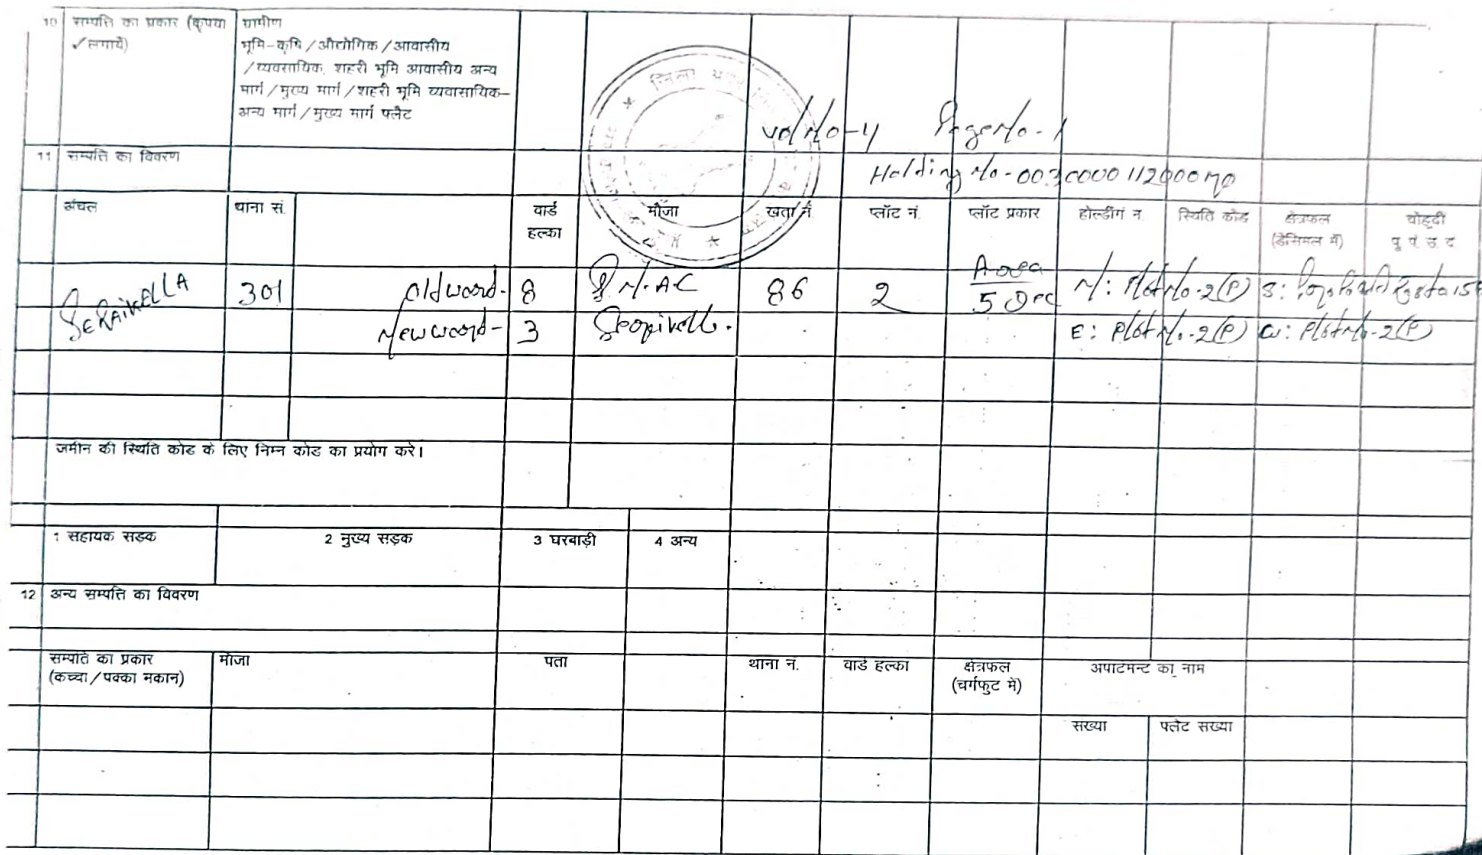 10 सम्पत्ति का प्रकार (कृपया ग्रामीण
✓लगायें) भूमि-कृषि/औद्योगिक/आवासीय
/व्यवसायिक, शहरी भूमि आवासीय अन्य
मार्ग/मुख्य मार्ग/शहरी भूमि व्यवासायिक-
अन्य मार्ग/मुख्य मार्ग फ्लैट
जिला
Vol No-4 Page No-1
11 सम्पत्ति का विवरण
Holding No-
अंचल थाना सं. वार्ड हल्का मौजा खता नं. प्लॉट नं. प्लॉट प्रकार होल्डींग न स्थिति कोड क्षेत्रफल (डेसिमल में) चौहद्दी पु पं उ द
SERAIKELLA 301 Old word- 8 86 2 Area 5 Dec N: Plot No-2(P) S:
New word- 3 E: Plot No-2(P) W: Plot No-2(P)
जमीन की स्थिति कोड के लिए निम्न कोड का प्रयोग करे।
1 सहायक सड़क 2 मुख्य सड़क 3 घरबाड़ी 4 अन्य
12 अन्य सम्पत्ति का विवरण
सम्पति का प्रकार (कच्चा/पक्का मकान) मौजा पता थाना न. वार्ड हल्का क्षेत्रफल (वर्गफुट में) अपाटमन्ट का नाम
सख्या फ्लैट सख्या